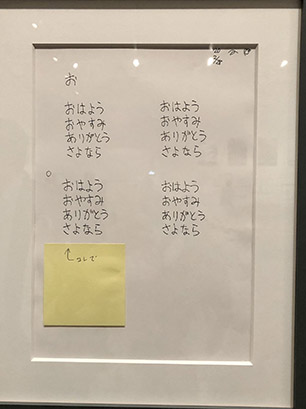 お
おはよう
おやすみ
ありがとう
さよなら
おはよう
おやすみ
ありがとう
さよなら
おはよう
おやすみ
ありがとう
さよなら
おはよう
おやすみ
ありがとう
さよなら
↑コレで